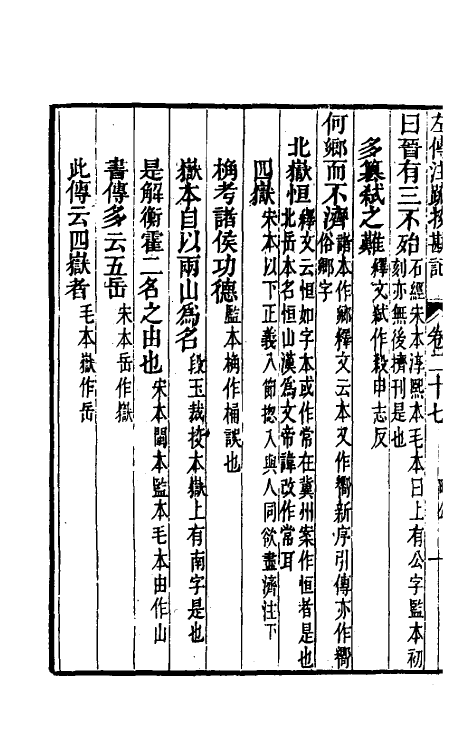 左傳注疏挍勘記 卷二十七
曰晉有三不殆 石經宋本淳熙本毛本曰上有公字監本初
刻亦無後擠刊是也
多篡弑之難 釋文弑作殺申志反
何鄉而不濟 諸本作鄉釋文云本又作嚮新序引傳亦作嚮
俗鄉字
北嶽恒 釋文云恒如字本或作常在冀州案作恒者是也
北岳本名恒山漢爲文帝諱改作常耳
四嶽 宋本以下正義入節揔入與人同欲盡濟注下
桷考諸侯功德 監本桷作桶誤也
嶽本自以兩山爲名 段玉裁挍本嶽上有南字是也
是解衡霍二名之由也 宋本閩本監本毛本由作山
書傳多云五岳 宋本岳作嶽
此傳云四嶽者 毛本嶽作岳